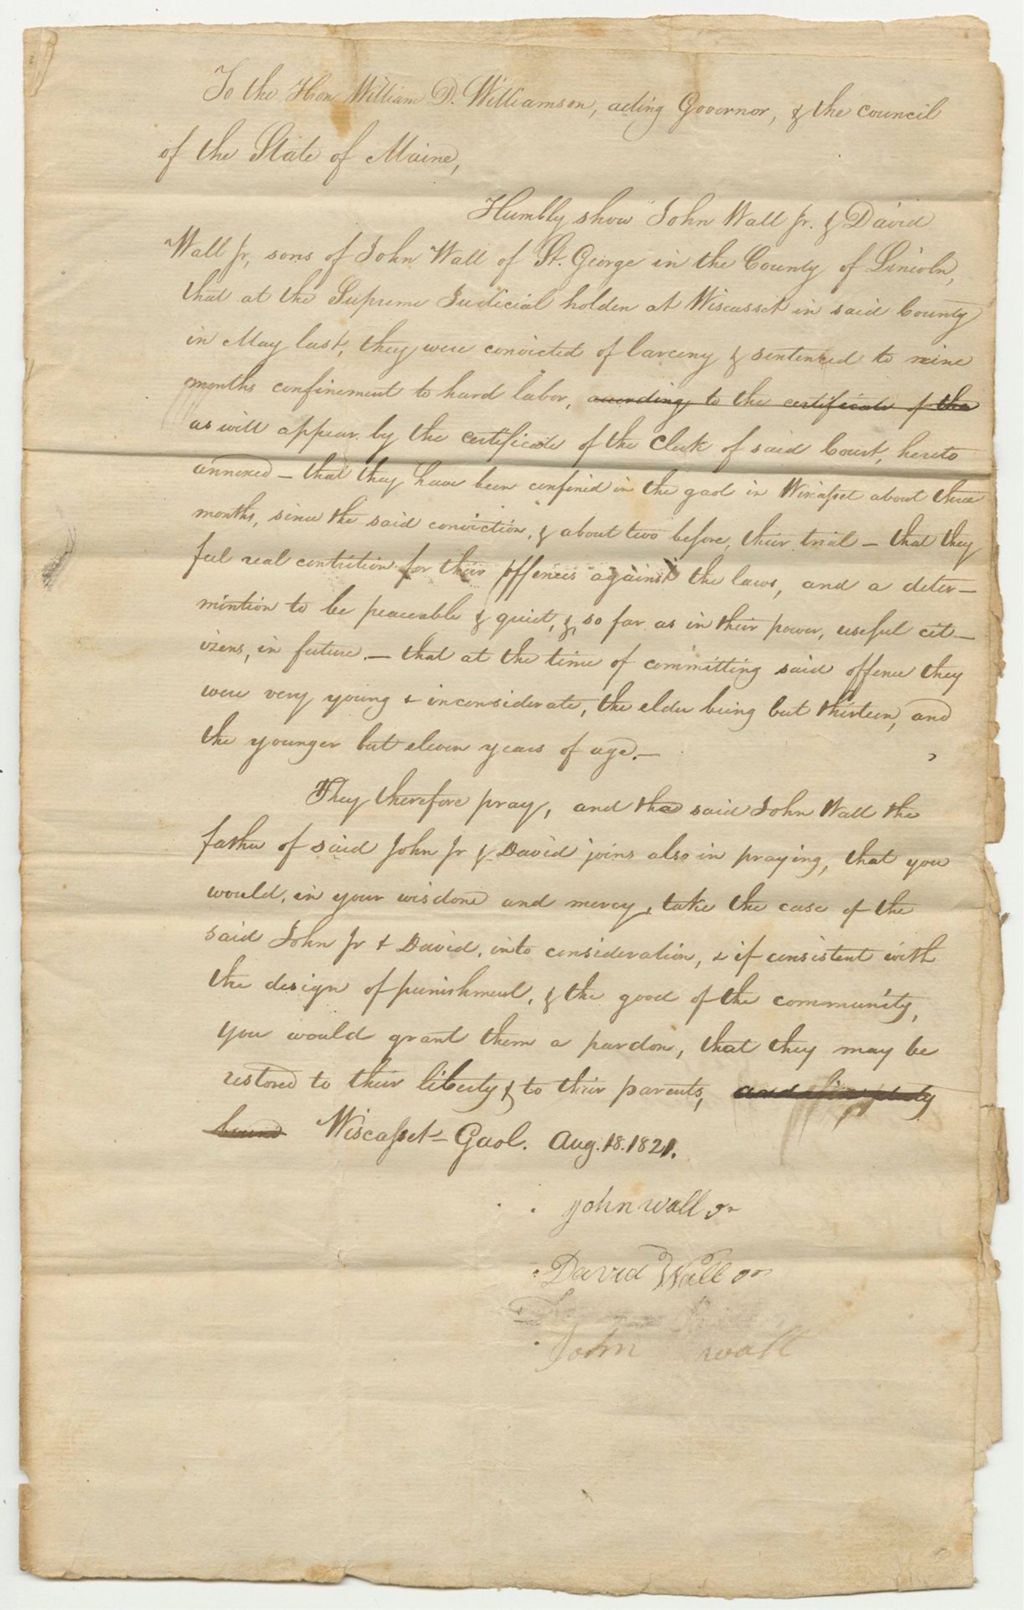 To the Hon William D. Williamson, acting Governor, & the council
of the State of Maine,
Humbly show John Wall Jr. & David
Wall Jr, sons of John Wall of St. George in the County of Lincoln,
that at the Supreme Judicial holden at Wiscasset in said County
in May last, they were convicted of larceny & sentenced to nine
months confinement to hard labor, according to the certificate of the
as will appear by the certificate of the Clerk of said Court, hereto
annexed – that they have been confined in the gaol in Wiscasset about three
months, since the said conviction, & about two before, their trial – that they
feel real contrition for their offences against the laws, and a deter–
mintion to be peaceable & quiet, &, so far as in their power, useful cit–
izens, in future – that at the time of committing said offence they
were very young & inconsiderate, the elder being but thirteen, and
the younger but eleven years of age. –
They therefore pray, and the said John Wall the
father of said John Jr & David joins also in praying, that you
would, in your wisdom and mercy, take the case of the
said John Jr & David, into consideration, & if consistent with
the design of punishment, & the good of the community,
you would grant them a pardon, that they may be
restored to their liberty & to their parents, and
bound Wiscasset Gaol. Aug. 18. 1821.
John Wall Jr
David Wall Jr
John Wall